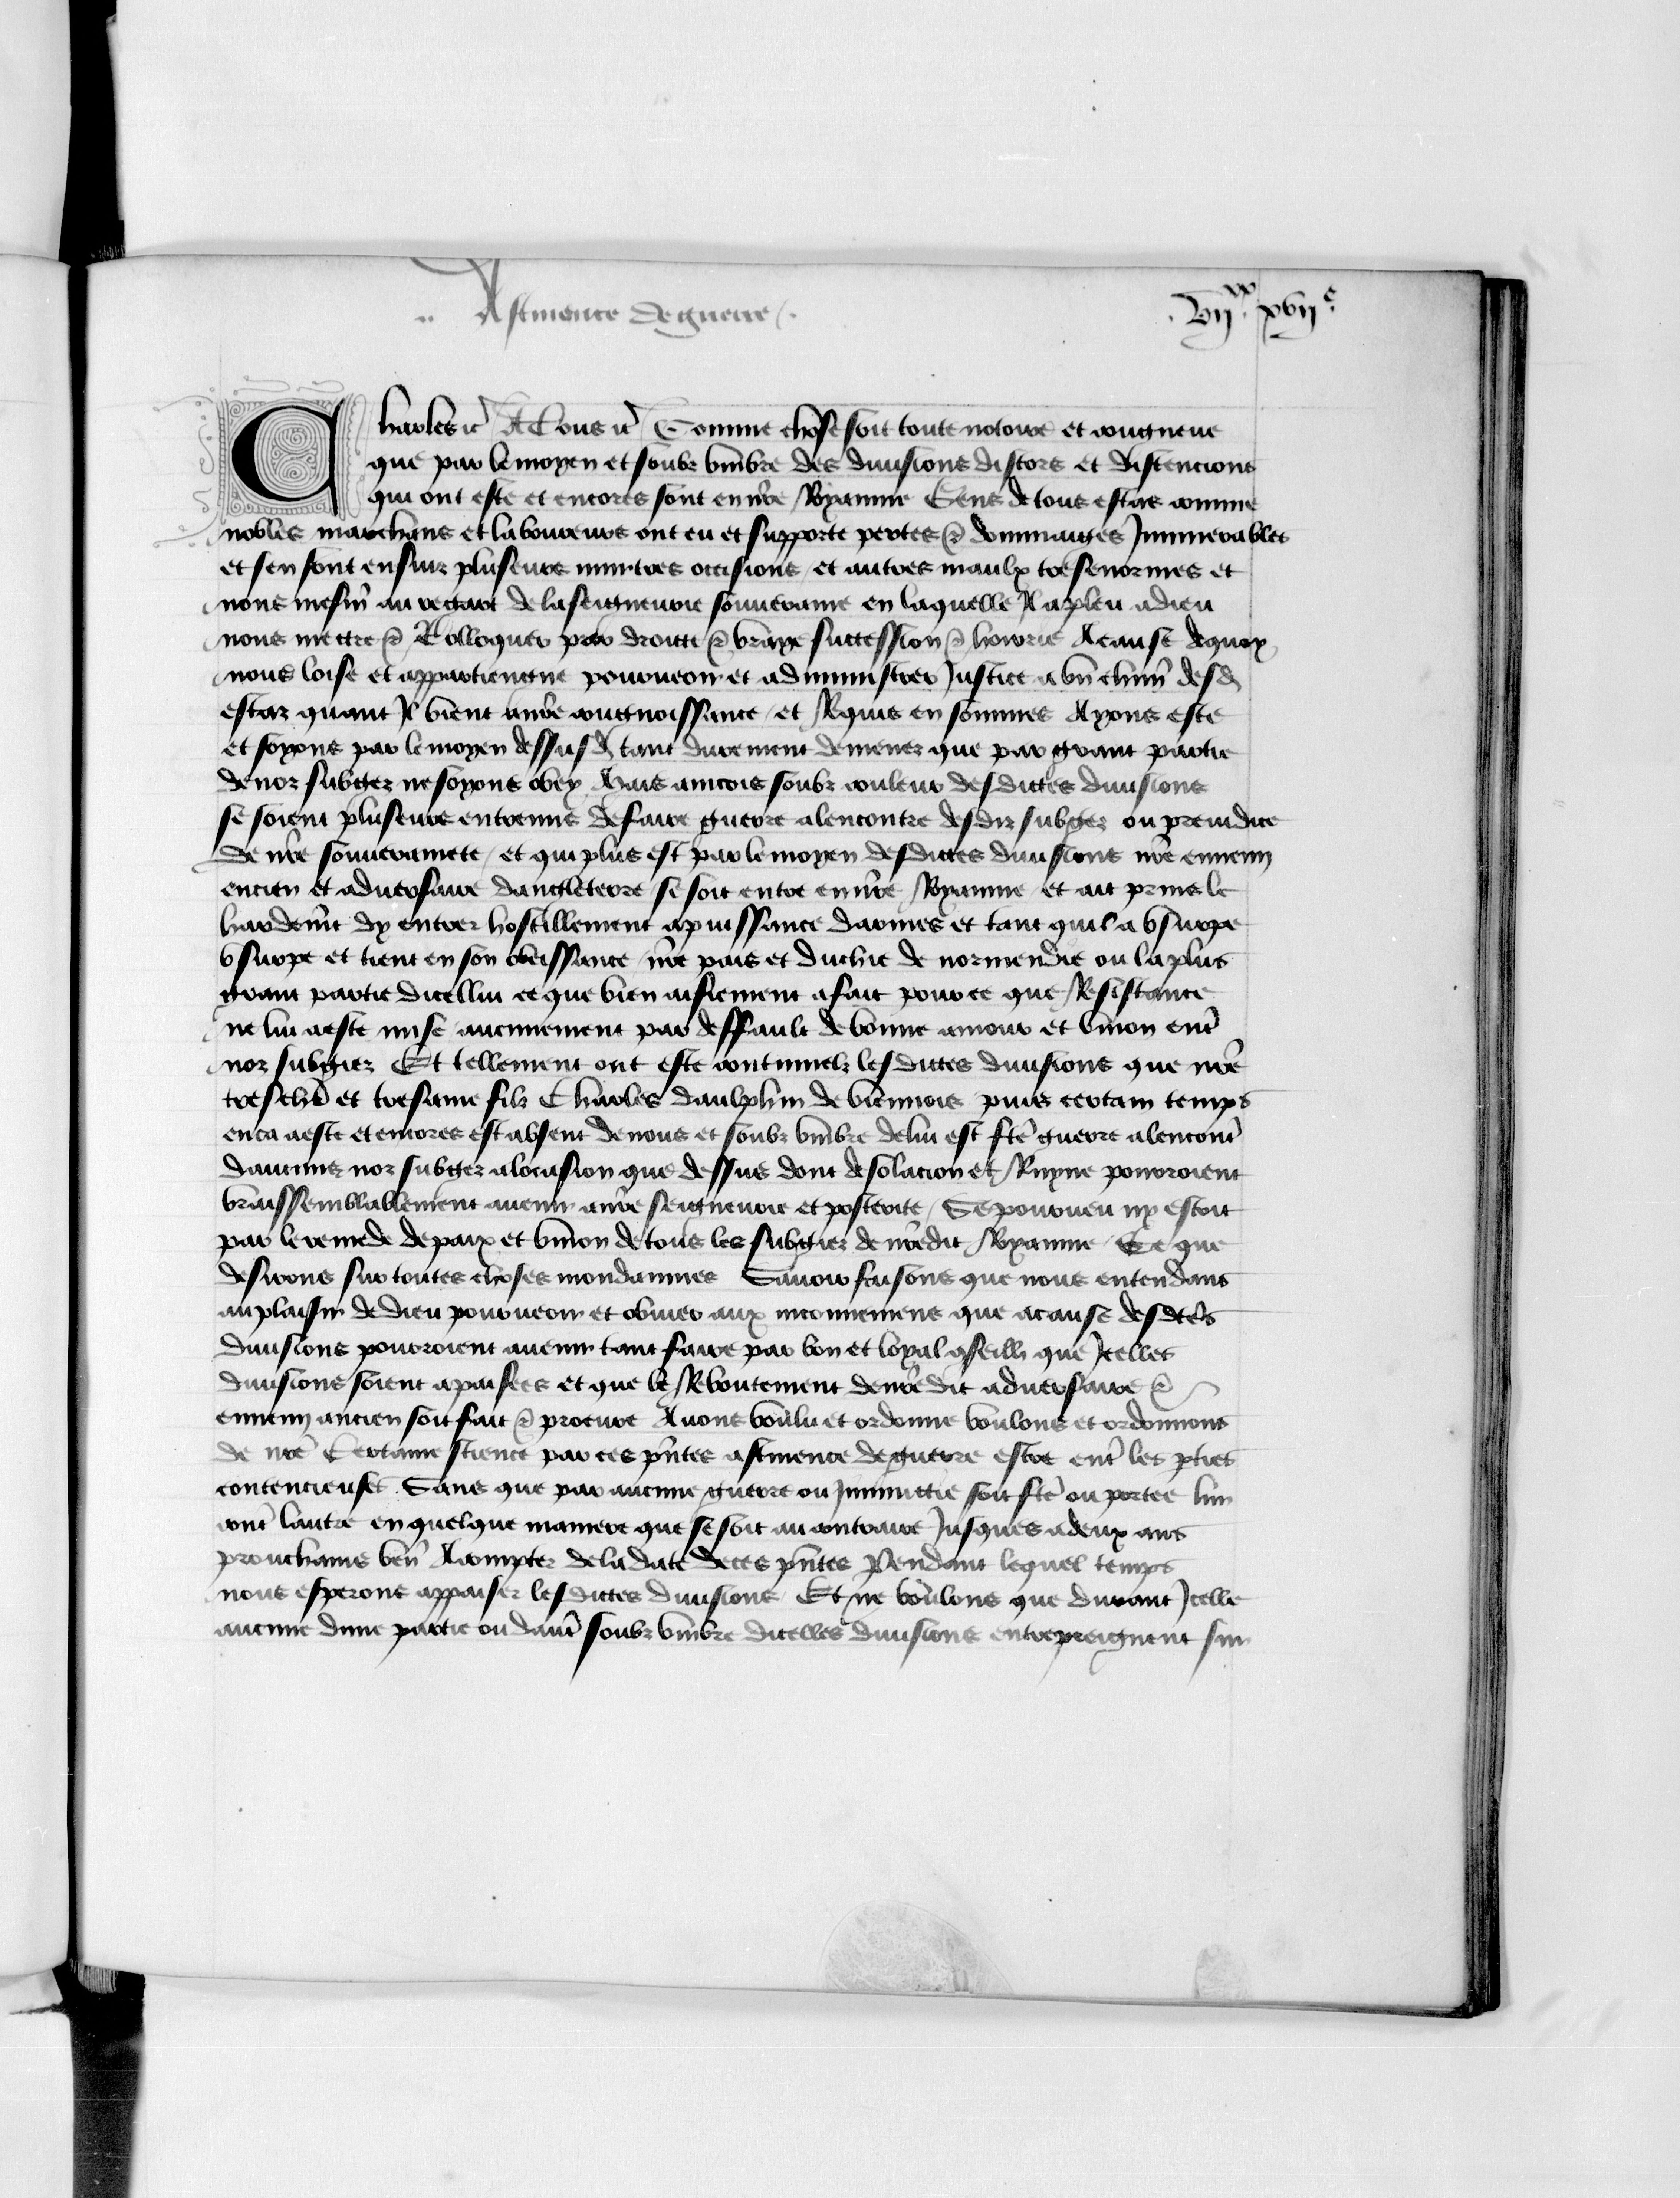 Astinence de guerre
.vijxx. xvije.
Charles etc A tous etc Comme chose soit toute notoire et congneue
que par le moyen et soubz umbre des divisions discors et distencions
qui ont este et encores sont en nre Royaume Gens de tous estas comme
nobles marchans et laboureurs ont eu et supporte pertes et dommaiges Innumerables
et sen sont ensuiz pluseurs murtres occisions et autres maulx tresenormes et
nous mesm au regart de la seigneurie souveraine en laquelle Il a pleu a dieu
nous mettre et Colloquer par droitte et vraye succession et hoirrie A cause de quoy
nous loise et appartiengne pourveoir et administrer Justice a un chun desd
estaz quant Il vient a nre congnoissance et Requis en sommes Ayons este
et soyons par le moyen dessusd tant durement demenez que par grant partie
de noz subgez ne soyons obey Mais aincois soubz couleur desdictes divisions
se soient pluseurs entremis de faire guerre a lencontre desdiz subgez ou preiudice
de nre souverainete et qui plus est par le moyen desdictes divisions nre ennemy
encien et adversaire dangleterre se soit entre en nre Royaume et ait prins le
hardemt dy entrer hostillement a puissance darmes et tant quil a usurpe
usurpe et tient en son obeissance nre pais et duchie de normendie ou la plus
grant partie dicellui ce que bien aisieement a fait pour ce que Resistance
ne lui a este mise aucunement par deffault de bonne amour et union ent
noz subgiez Et tellement ont este continuelz lesdictes divisions que nre
treschr et tresame filz Charles daulphin de viennois puis certain temps
enca a este et encores est absent de nous et soubz umbre de lui est fte guerre a lencont
daucuns noz subgez a locasion que dessus dont desolacion et Ruyne pourroient
vraissemblablement avenir a nre seigneurie et posterite Se pourveu ny estoit
par le remede de paix et union de tous les subgiez de nredit Royaume Ce que
desirons sur toutes choses mondainnes Savoir faisons que nous entendans
au plaisir de dieu pourveoir et obvier aux inconveniens que a cause desdtes
divisions pourroient avenir tant faire par bon et loyal cseilh que Icelles
divisions soient apaisees et que le Reboutement de nredit adversaire et
ennemy ancien soit fait et procure Avons voulu et ordonne voulons et ordonnons
de nre Certaine science par ces pntes astinence de guerre estre ent les pties
contencieuses Sans que par aucune guerre ou Inimittie soit fte ou portee lun
cont lautre en quelque maniere que se soit au contraire Jusques a deux ans
prouchains ven A compter de la date de ces pntes Pendant lequel temps
nous esperons appaiser lesdictes divisions Et ne voulons que durant Icelle
aucune dune partie ou daut soubz umbre dicelles divisions entrepreignent sur